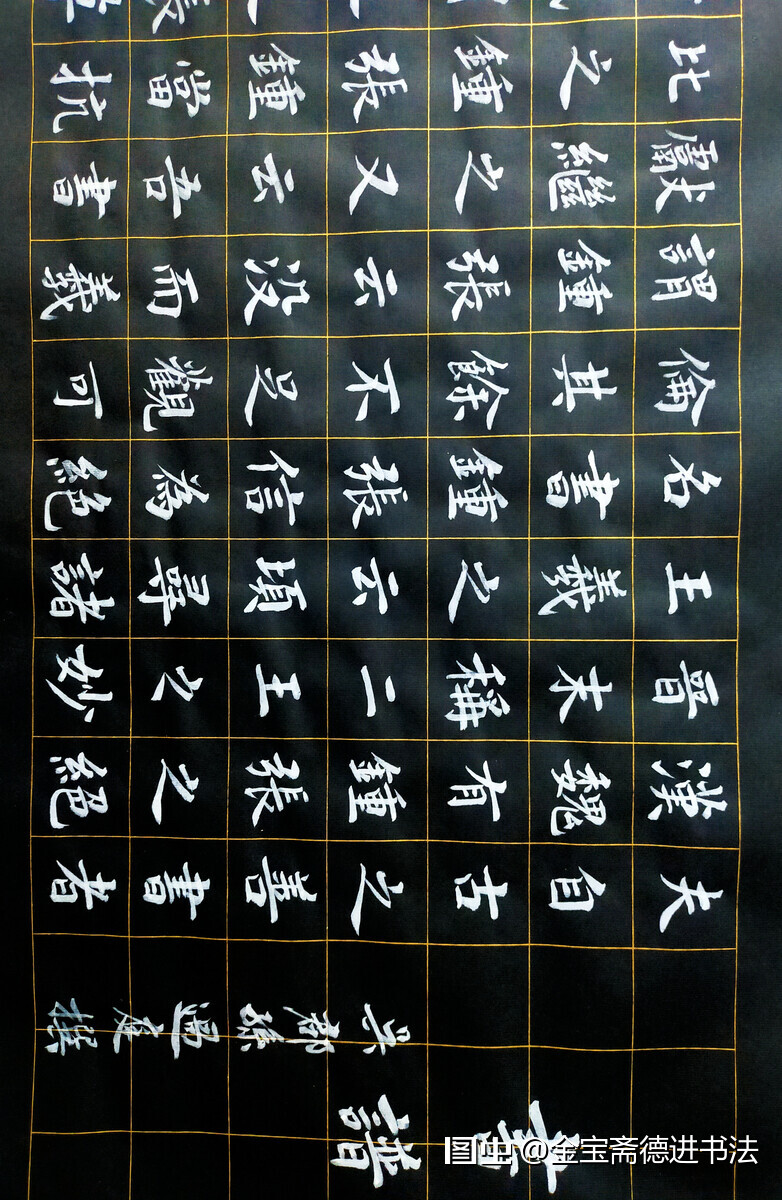 書譜
吳郡孫過庭撰
夫自古之善書者
漢魏有鐘張之絕
晉末稱二王之妙
王羲之云頃尋諸
名書鐘張信為絕
倫其餘不足觀可
謂鐘張云沒而羲
獻繼之又云吾書
比之鐘張鐘當抗
图虫@金宝斋德进书法